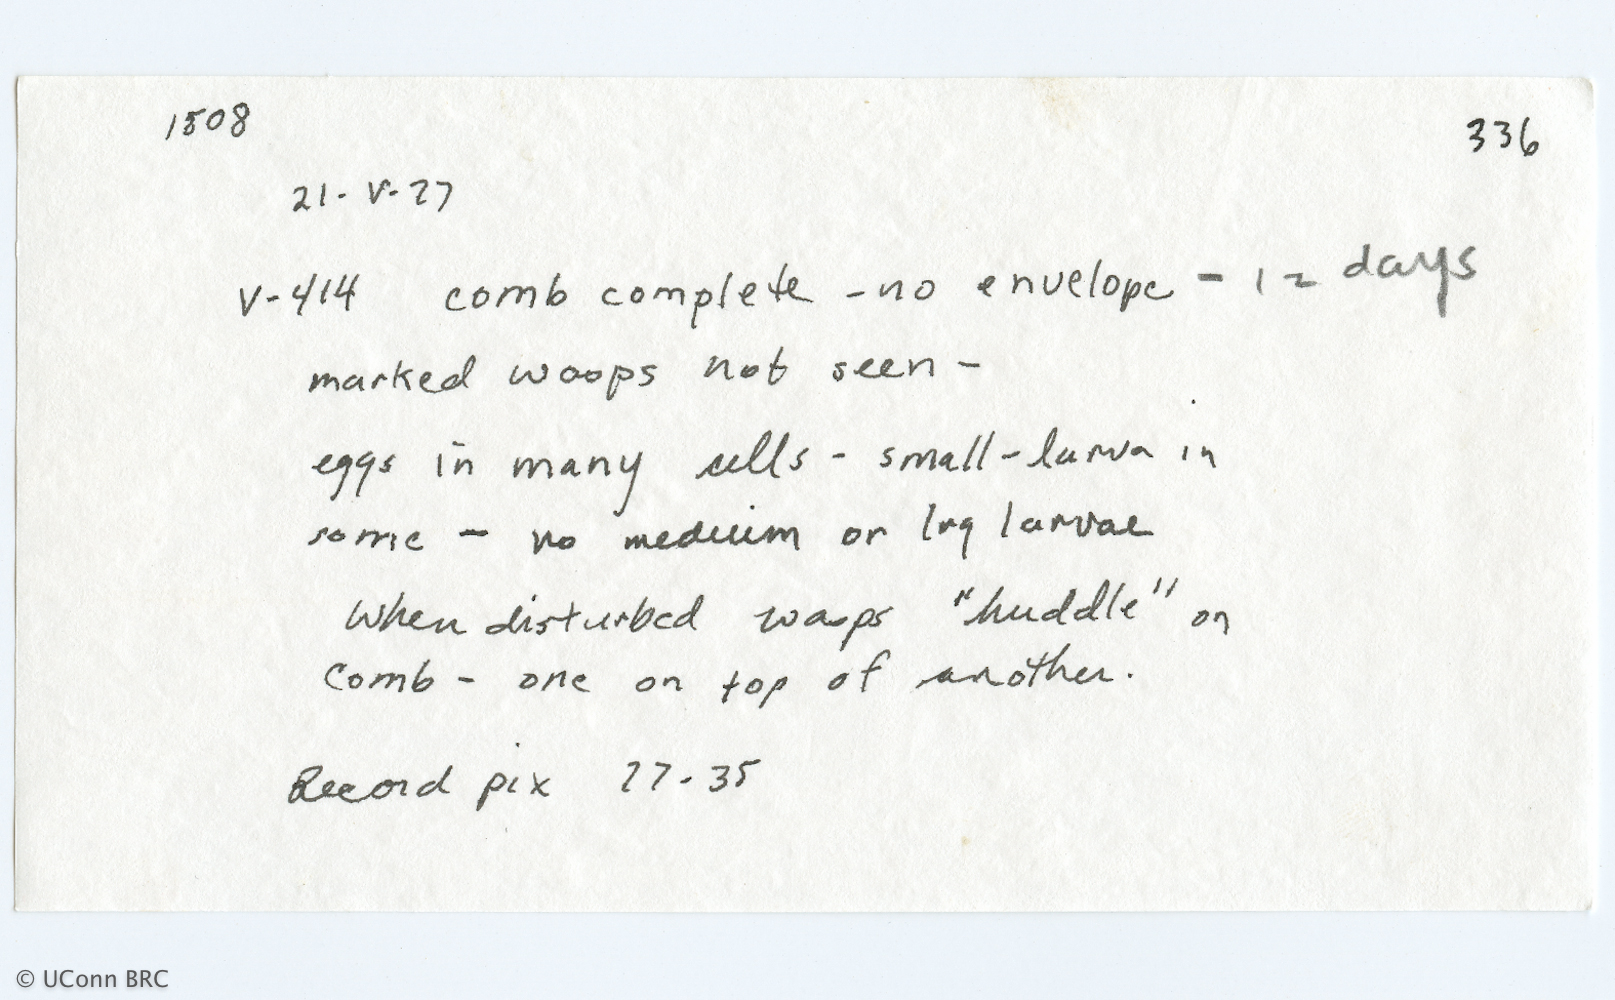 1508
336
21-V-77
V-414 comb complete - no envelope - 12 days
marked wasps not seen -
eggs in many cells - small - larva in
some - no medium or lrg larvae
When disturbed wasps "huddle" on
Comb - one on top of another.
Record pix 27-35
© UConn BRC